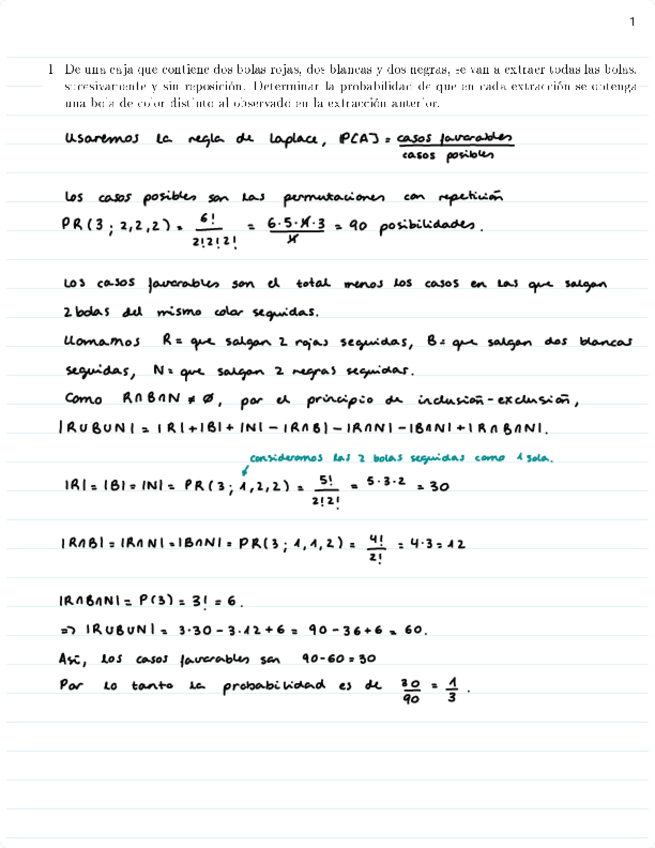 1
1 De una caja que contiene dos bolas rojas, dos blancas y dos negras, se van a extraer todas las bolas,
sucesivamente y sin reposición. Determinar la probabilidad de que en cada extracción se obtenga
una bola de color distinto al observado en la extracción anterior.
Usaremos la regla de Laplace, P[A] = casos favorables / casos posibles
Los casos posibles son las permutaciones con repetición
PR(3; 2,2,2) = 6! / 2!2!2! = 6·5·4·3 / 4 = 90 posibilidades.
Los casos favorables son el total menos los casos en las que salgan
2 bolas del mismo color seguidas.
Llamamos R = que salgan 2 rojas seguidas, B = que salgan dos blancas
seguidas, N = que salgan 2 negras seguidas.
Como R∩B∩N ≠ ∅, por el principio de inclusión-exclusión,
|RUBUN| = |R|+|B|+|N|-|R∩B|-|R∩N|-|B∩N|+|R∩B∩N|.
consideramos las 2 bolas seguidas como 1 sola.
|R| = |B| = |N| = PR(3; 1,2,2) = 5! / 2!2! = 5·3·2 = 30
|R∩B| = |R∩N| = |B∩N| = PR(3; 1,1,2) = 4! / 2! = 4·3 = 12
|R∩B∩N| = P(3) = 3! = 6.
=> |RUBUN| = 3·30 - 3·12 + 6 = 90 - 36 + 6 = 60.
Así, los casos favorables son 90-60 = 30
Por lo tanto la probabilidad es de 30/90 = 1/3.